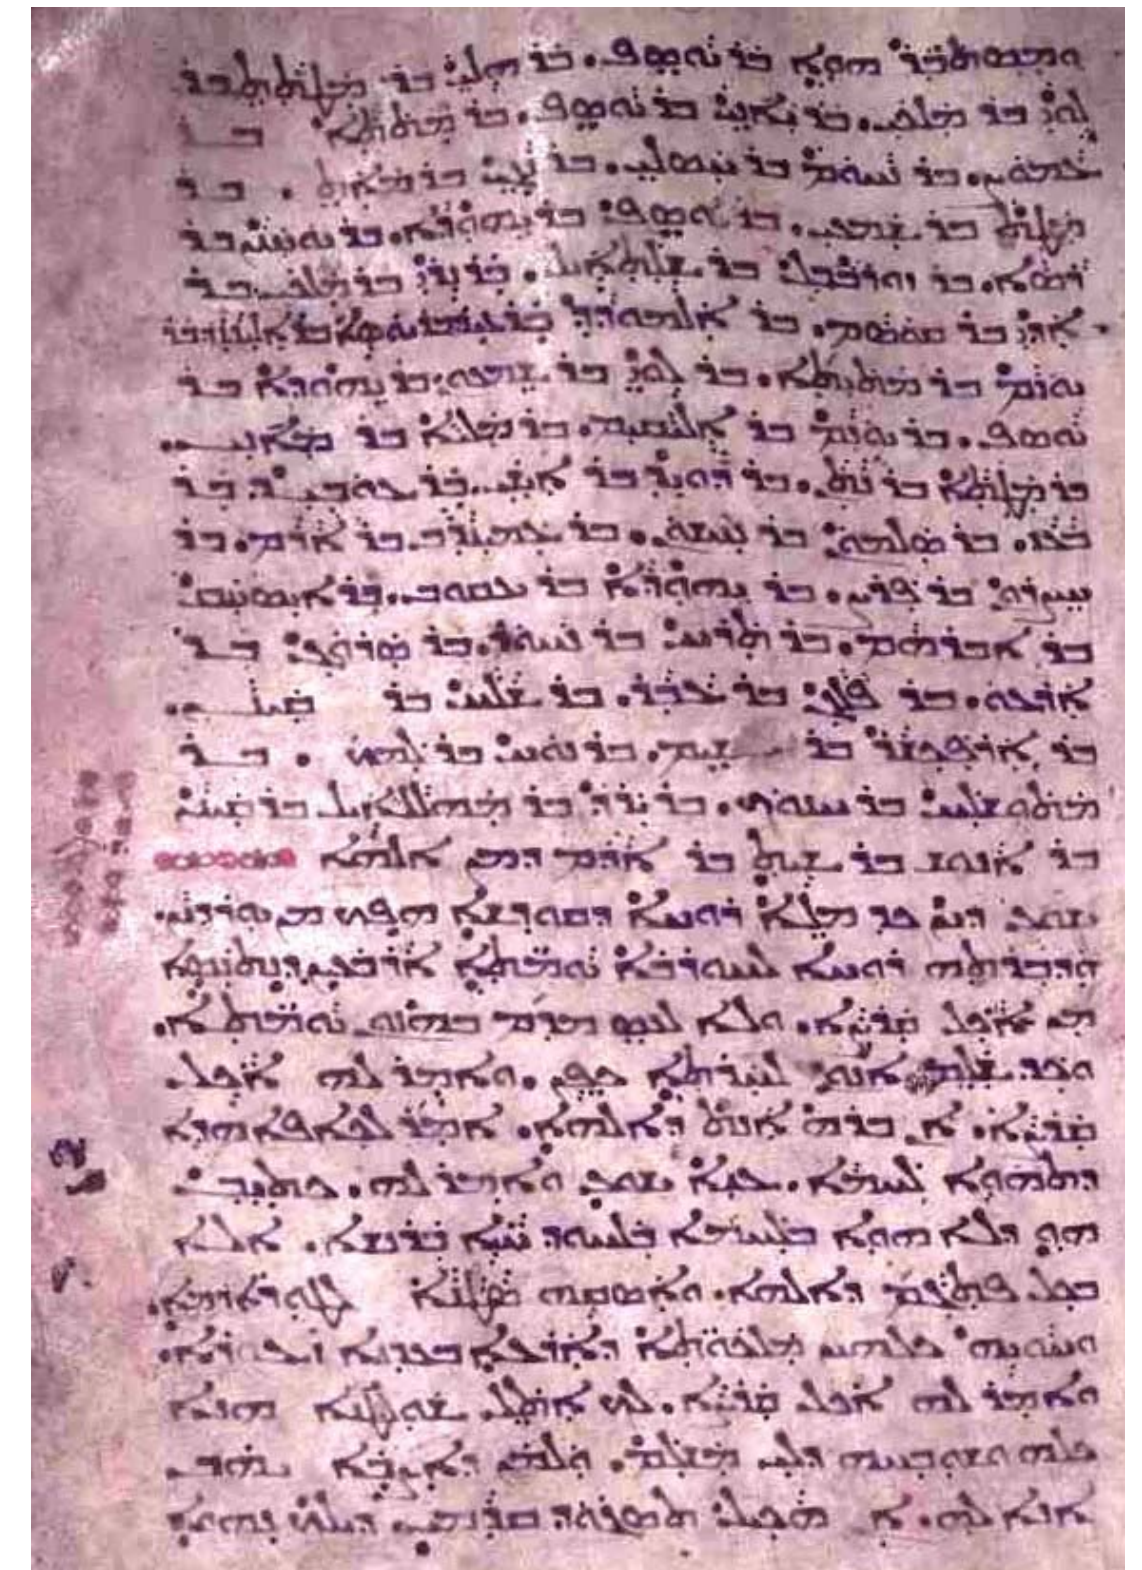 ܘܡܣܬܒܪ ܗܘܐ ܒܪ ܝܘܣܦ. ܒܪ ܗܠܝ ܒܪ ܡܛܬܬ ܒܪ
ܠܘܝ ܒܪ ܡܠܟܝ. ܒܪ ܝܐܢܝ ܒܪ ܝܘܣܦ. ܒܪ ܡܬܬܐ ܒܪ
ܒܪ ܢܚܘܡ ܒܪ ܚܣܠܝ. ܒܪ ܢܓܝ ܒܪ ܡܐܬ. ܒܪ
ܡܛܬ ܒܪ ܫܡܥܝ. ܒܪ ܝܘܣܦ ܒܪ ܝܗܘܕܐ. ܒܪ ܝܘܚܢܢ ܒܪ
ܪܣܐ. ܒܪ ܙܘܪܒܒܠ ܒܪ ܫܠܬܐܝܠ. ܒܪ ܢܪܝ ܒܪ ܡܠܟܝ ܒܪ
ܐܕܝ ܒܪ ܩܘܣܡ. ܒܪ ܒܪ
ܝܘܪܡ ܒܪ ܡܬܝܬܐ. ܒܪ ܠܘܝ ܒܪ ܫܡܥܘܢ ܒܪ ܝܗܘܕܐ ܒܪ
ܝܘܣܦ. ܒܪ ܝܘܢܡ ܒܪ ܐܠܝܩܝܡ. ܒܪ ܡܠܝܐ ܒܪ ܡܐܢܝ.
ܒܪ ܡܛܬܐ ܒܪ ܢܬܢ. ܒܪ ܕܘܝܕ ܒܪ ܐܝܫܝ. ܒܪ ܥܘܒܝܕ. ܒܪ
ܒܥܙ. ܒܪ ܣܠܡܘܢ ܒܪ ܢܚܫܘܢ. ܒܪ ܥܡܝܢܕܒ ܒܪ ܐܪܡ. ܒܪ
ܚܨܪܘܢ ܒܪ ܦܪܨ. ܒܪ ܝܗܘܕܐ ܒܪ ܝܥܩܘܒ. ܒܪ ܐܝܣܚܩ
ܒܪ ܐܒܪܗܡ. ܒܪ ܬܪܚ ܒܪ ܢܚܘܪ. ܒܪ ܣܪܘܓ ܒܪ
ܐܪܥܘ. ܒܪ ܦܠܓ ܒܪ ܥܒܪ. ܒܪ ܫܠܚ ܒܪ ܩܝܢܢ.
ܒܪ ܐܪܦܟܫܪ ܒܪ ܫܝܡ. ܒܪ ܢܘܚ ܒܪ ܠܡܟ. ܒܪ
ܡܬܘܫܠܚ ܒܪ ܚܢܘܟ. ܒܪ ܝܪܕ ܒܪ ܡܗܠܠܐܝܠ ܒܪ ܩܝܢܢ
ܒܪ ܐܢܘܫ ܒܪ ܫܝܬ ܒܪ ܐܕܡ ܕܡܢ ܐܠܗܐ
ܝܫܘܥ ܕܝܢ ܟܕ ܡܠܐ ܪܘܚܐ ܕܩܘܕܫܐ ܗܦܟ ܡܢ ܝܘܪܕܢܢ.
ܘܕܒܪܬܗ ܪܘܚܐ ܠܚܘܪܒܐ ܝܘܡܬܐ ܐܪܒܥܝܢ ܕܢܬܢܣܐ
ܡܢ ܐܟܠ ܩܪܨܐ. ܘܠܐ ܠܥܣ ܡܕܡ ܒܗܢܘܢ ܝܘܡܬܐ.
ܘܟܕ ܫܠܡ ܐܢܘܢ ܠܚܪܬܐ ܟܦܢ. ܘܐܡܪ ܠܗ ܐܟܠ
ܩܪܨܐ. ܐܢ ܒܪܗ ܐܢܬ ܕܐܠܗܐ. ܐܡܪ ܠܟܐܦܐ ܗܕܐ
ܕܬܗܘܐ ܠܚܡܐ. ܥܢܐ ܝܫܘܥ ܘܐܡܪ ܠܗ. ܟܬܝܒ
ܗܘ ܕܠܐ ܗܘܐ ܒܠܚܡܐ ܒܠܚܘܕ ܚܝܐ ܒܪܢܫܐ. ܐܠܐ
ܒܟܠ ܦܬܓܡ ܕܐܠܗܐ. ܘܐܣܩܗ ܣܛܢܐ ܠܛܘܪܐ ܪܡܐ.
ܘܚܘܝܗ ܟܠܗܝܢ ܡܠܟܘܬܐ ܕܐܪܥܐ ܒܥܕܢܐ ܙܥܘܪܐ.
ܘܐܡܪ ܠܗ ܐܟܠ ܩܪܨܐ. ܠܟ ܐܬܠ ܫܘܠܛܢܐ ܗܢܐ
ܟܠܗ ܘܫܘܒܚܗ ܕܠܝ ܡܫܠܡ. ܘܠܡܢ ܕܐܨܒܐ ܝܗܒ
ܐܢܐ ܠܗ. ܐܢ ܗܟܝܠ ܬܣܓܘܕ ܩܕܡܝ. ܕܝܠܟ ܢܗܘܐ